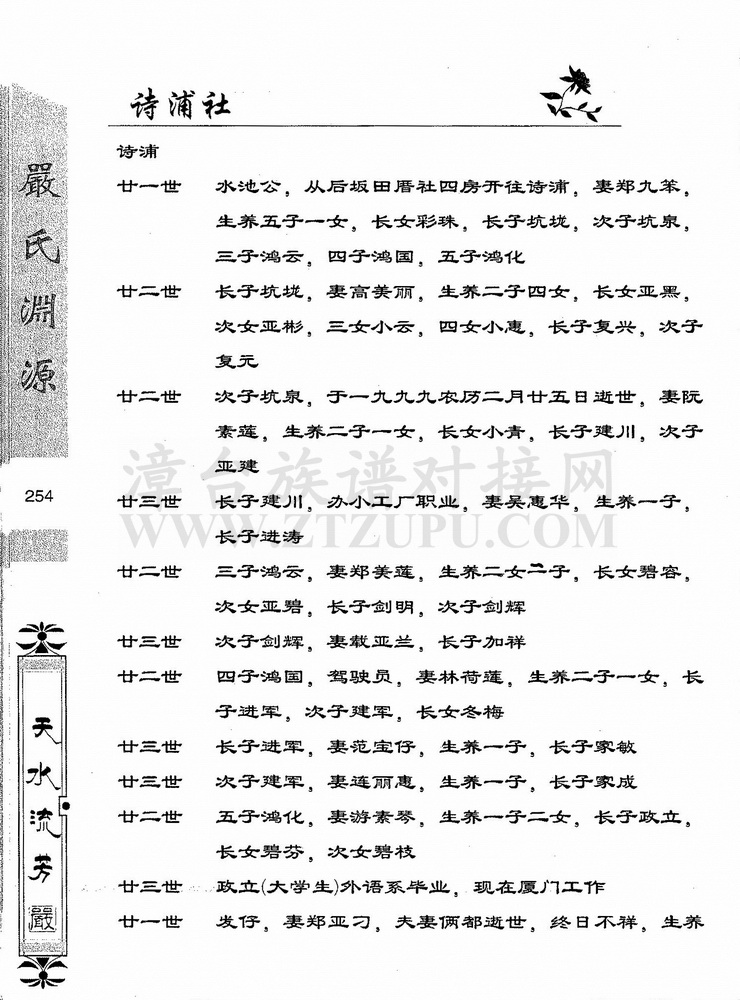 诗浦社
诗浦
廿一世 水池公，从后坂田厝社四房开往诗浦，妻郑九笨，
生养五子一女，长女彩珠，长子坑垅，次子坑泉，
三子鸿云，四子鸿国，五子鸿化
廿二世 长子坑垅，妻高美丽，生养二子四女，长女亚黑，
次女亚彬，三女小云，四女小惠，长子复兴，次子
复元
廿二世 次子坑泉，于一九九九农历二月廿五日逝世，妻阮
素莲，生养二子一女，长女小青，长子建川，次子
亚建
廿三世 长子建川，办小工厂职业，妻吴惠华，生养一子，
长子进涛
廿二世 三子鸿云，妻郑美莲，生养二女二子，长女碧容，
次女亚碧，长子剑明，次子剑辉
廿三世 次子剑辉，妻载亚兰，长子加祥
廿二世 四子鸿国，驾驶员，妻林荷莲，生养二子一女，长
子进军，次子建军，长女冬梅
廿三世 长子进军，妻范宝仔，生养一子，长子家敏
廿三世 次子建军，妻连丽惠，生养一子，长子家成
廿二世 五子鸿化，妻游素琴，生养一子二女，长子政立，
长女碧芬，次女碧枝
廿三世 政立(大学生)外语系毕业，现在厦门工作
廿一世 发仔，妻郑亚刁，夫妻俩都逝世，终日不祥，生养
嚴氏淵源
254
天水流芳
嚴
漳台族谱对接网
WWW.ZTZUPU.COM